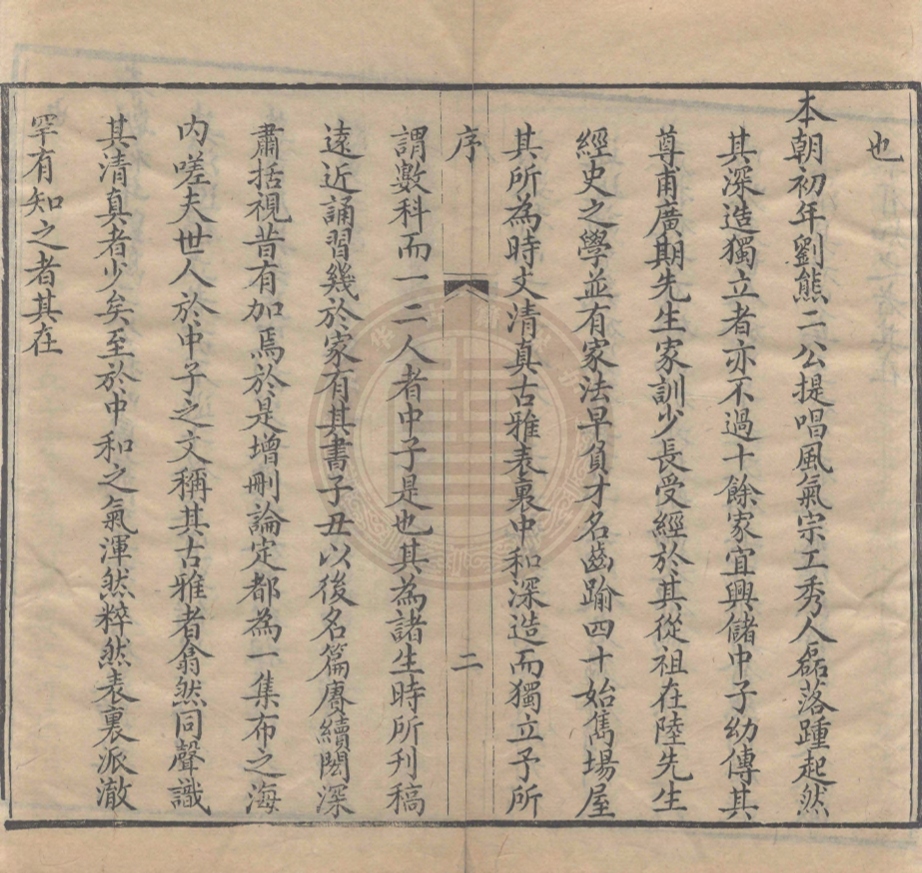 也
本朝初年劉熊二公提唱風氣宗工秀人磊落踵起然
其深造獨立者亦不過十餘家宜興儲中子幼傳其
尊甫廣期先生家訓少長受經於其從祖在陸先生
經史之學並有家法早負才名齒踰四十始雋場屋
其所為時文清真古雅表裏中和深造而獨立予所
序
二
謂數科而一二人者中子是也其為諸生時所刊稿
遠近誦習幾於家有其書子丑以後名篇賡續閎深
肅括視昔有加焉於是增刪論定都為一集布之海
内嗟夫世人於中子之文稱其古雅者翕然同聲識
其清真者少矣至於中和之氣渾然粹然表裏派澈
罕有知之者其在